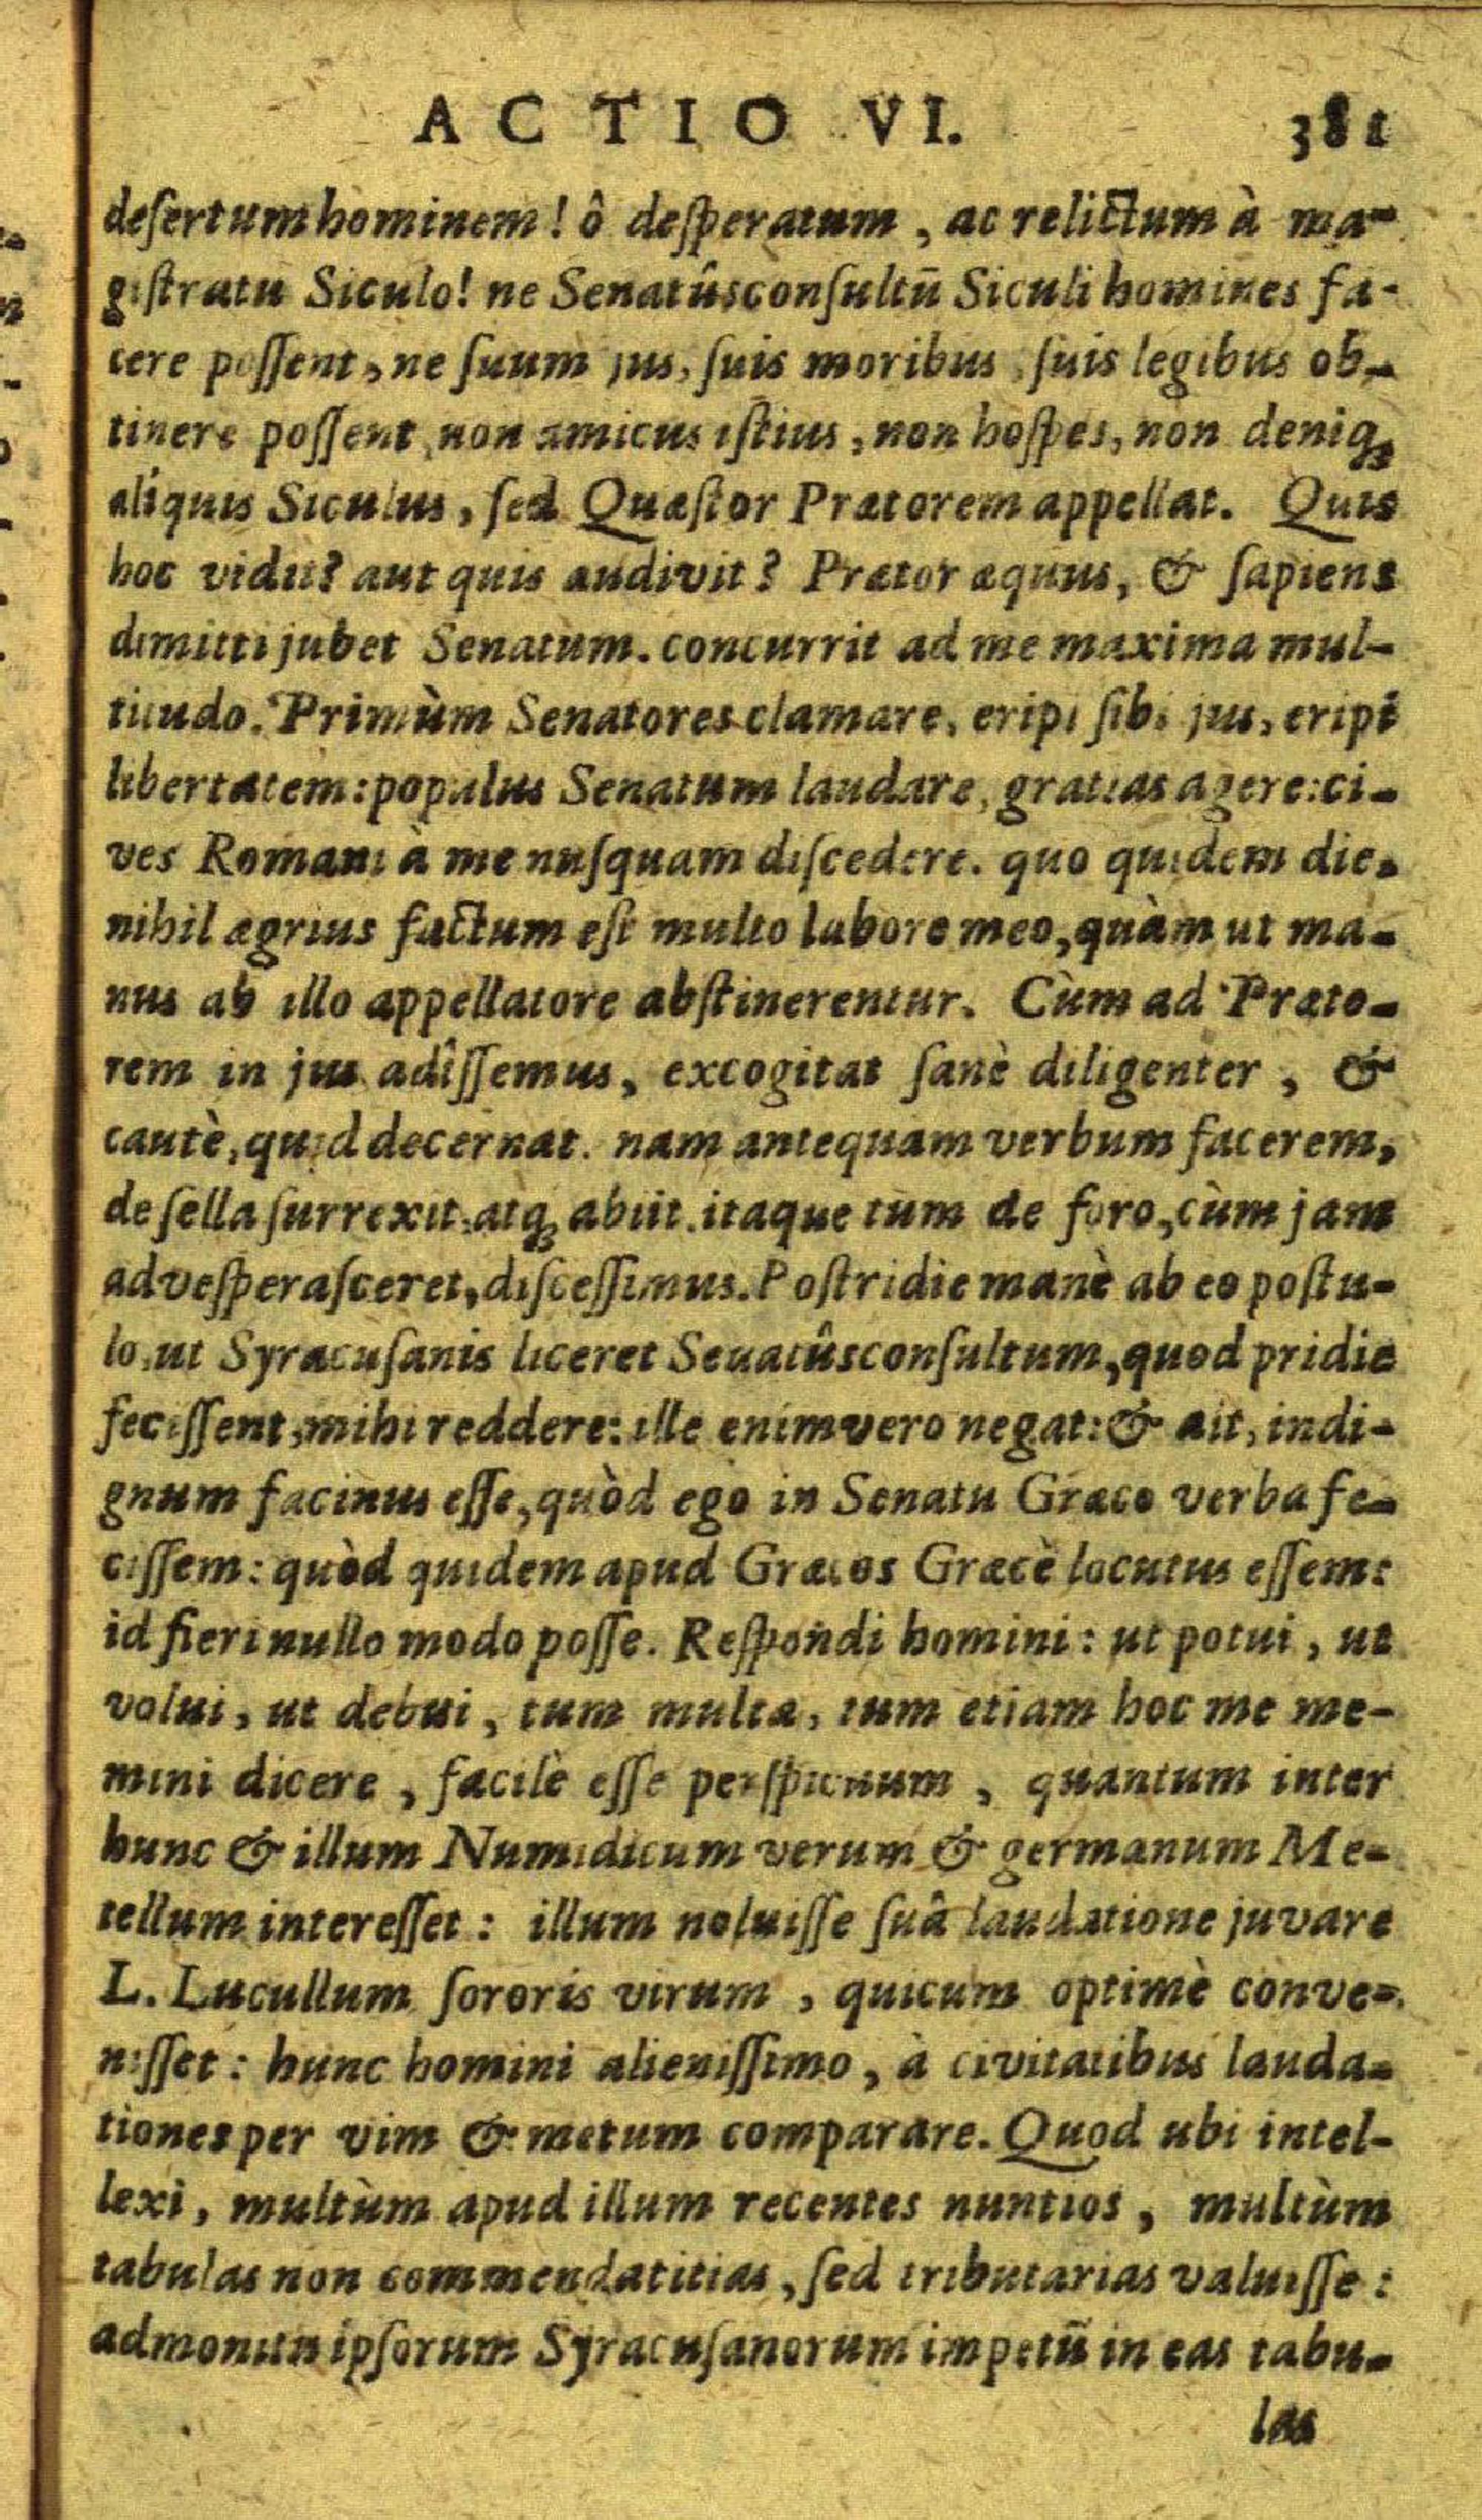 ACTIO VI. 381
desertum hominem! ô desperatum, ac relictum à ma-
gistratu Siculo! ne Senatûsconsultū Siculi homines fa-
cere possent, ne suum jus, suis moribus, suis legibus ob-
tinere possent, non amicus istius, non hospes, non deniq;
aliquis Siculus, sed Quæstor Prætorem appellat. Quis
hoc vidit? aut quis audivit? Prætor æquus, & sapiens
dimitti jubet Senatum. concurrit ad me maxima mul-
titudo. Primùm Senatores clamare, eripi sibi jus, eripi
libertatem: populus Senatum laudare, gratias agere: ci-
ves Romani à me nusquam discedere. quo quidem die,
nihil ægrius factum est multo labore meo, quàm ut ma-
nus ab illo appellatore abstinerentur. Cùm ad Præto-
rem in jus adîssemus, excogitat sanè diligenter, &
cautè, quid decernat. nam antequam verbum facerem,
de sella surrexit, atq; abiit. itaque tum de foro, cùm jam
advesperasceret, discessimus. Postridie manè ab eo postu-
lo, ut Syracusanis liceret Seuatûsconsultum, quod pridie
fecissent, mihi reddere: ille enimvero negat: & ait, indi-
gnum facinus esse, quòd ego in Senatu Græco verba fe-
cissem: quòd quidem apud Græcos Græcè locutus essem:
id fieri nullo modo posse. Respondi homini: ut potui, ut
volui, ut debui, tum multa, tum etiam hoc me me-
mini dicere, facilè esse perspicuum, quantum inter
hunc & illum Numidicum verum & germanum Me-
tellum interesset: illum noluisse suâ laudatione juvare
L. Lucullum sororis virum, quicum optimè conve-
nisset: hunc homini alienissimo, à civitatibus lauda-
tiones per vim & metum comparare. Quod ubi intel-
lexi, multùm apud illum recentes nuntios, multùm
tabulas non commendatitias, sed tributarias valuisse:
admonitu ipsorum Syracusanorum impetū in eas tabu-
las